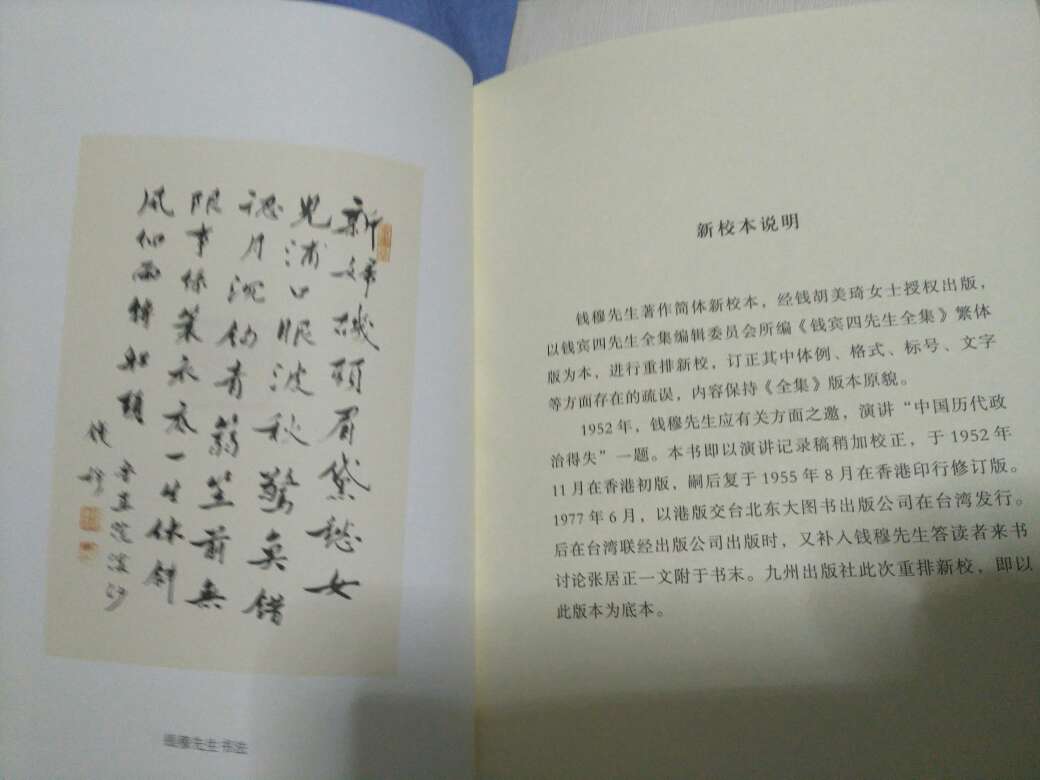 新婦磯頭眉黛愁女
兒浦口眼波秋驚魚錯
認月沉鈎青篛笠前無
限事綠蓑衣底一時休斜
風細雨轉船頭
魯直浣溪沙
錢穆
钱穆先生 书法
新校本说明
钱穆先生著作简体新校本，经钱胡美琦女士授权出版，
以钱宾四先生全集编辑委员会所编《钱宾四先生全集》繁体
版为本，进行重排新校，订正其中体例、格式、标号、文字
等方面存在的疏误，内容保持《全集》版本原貌。
1952年，钱穆先生应有关方面之邀，演讲“中国历代政
治得失”一题。本书即以演讲记录稿稍加校正，于1952年
11月在香港初版，嗣后复于1955年8月在香港印行修订版。
1977年6月，以港版交台北东大图书出版公司在台湾发行。
后在台湾联经出版公司出版时，又补入钱穆先生答读者来书
讨论张居正一文附于书末。九州出版社此次重排新校，即以
此版本为底本。